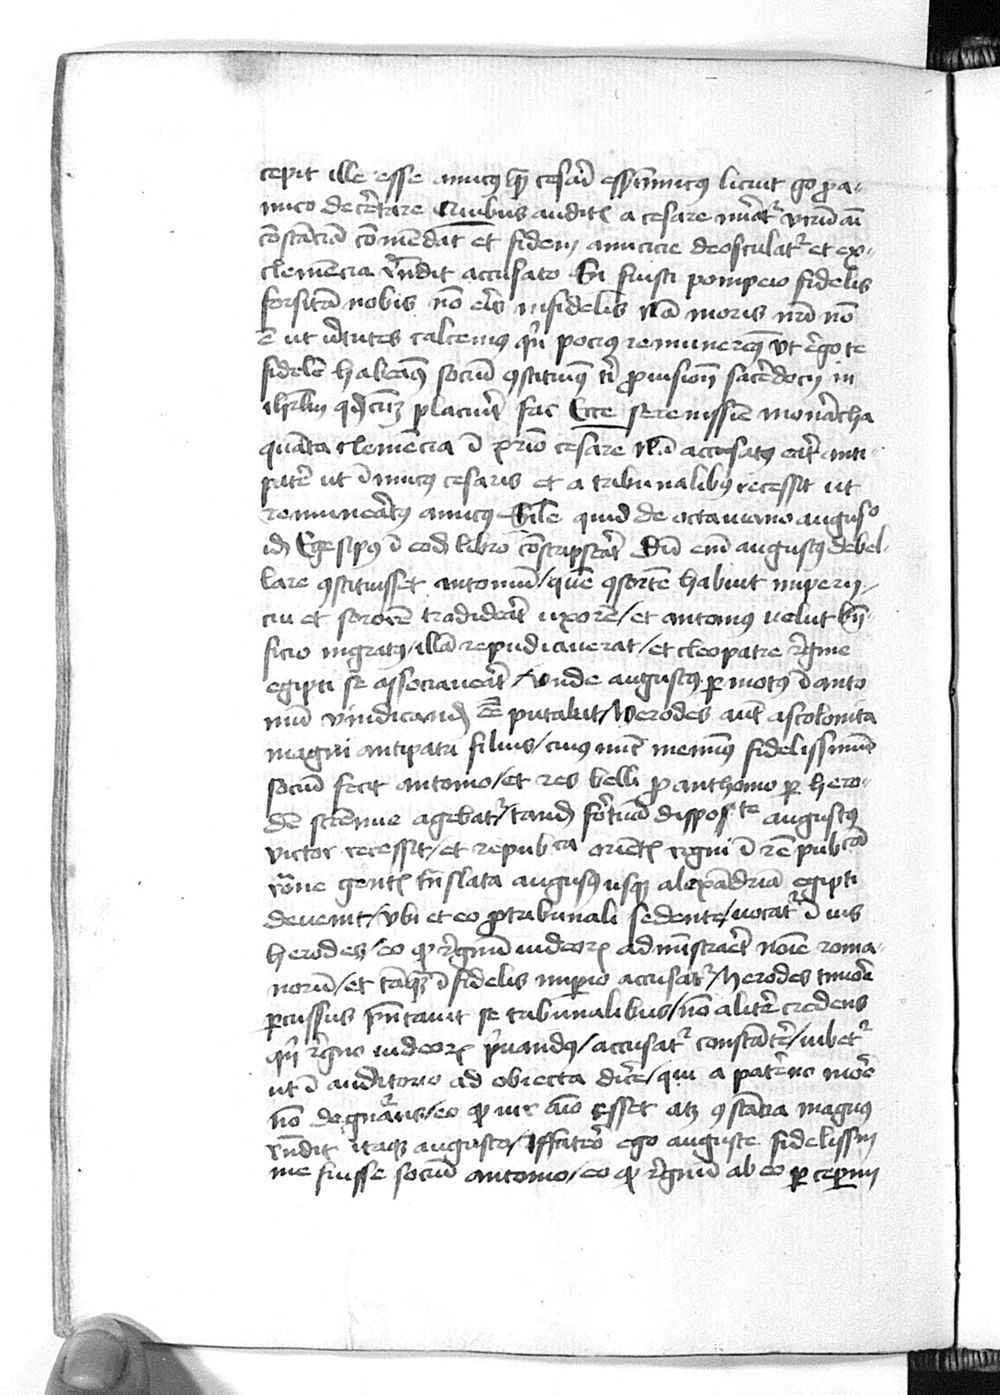 cepit ille esse amicus qz cesari esse inimicus licuit go pa-
mico decertare Quibus auditis a cesare mirat' virum
constancia commendat et fidem amicicie deosculat' et ex
clemencia rndit accusato Si fuisti pompeio fidelis
forsitan nobis non eris infidelis Nam moris nri non
e ut virtutes calcemus qn pocius remuneremus Ut ergo te
fidele habeamus socium constituimus ti provisionem sacerdocij in
ihrlm placuerit fac Ecce serenissime monarcha
quanta clemencia in primo cesare Nam accusatus erat anti-
pater ut inimicus cesaris et a tribunalibus recessit ut
remuneratus amicus Sile quid de octaviano augusto
idem Egesipus in eodem libro conscripserat Dum enim augustus debel-
lare constituisset antonium/quem consortem habuit imperij
cui et sororem tradiderat uxorem/et antonius velut bn-
ficio ingratus/illam repudiaverat/et cleopatre regine
egipti se associaverat/Unde augustus permotus in anto
nium vindicandum esse putabat/Herodes autem ascolonita
magni antipatri filius/cuius nunc meminimus fidelissimum
socium fecit antonio/et res belli pro anthonio per hero-
dem strenue agebat'/tandem fortuna disposite augustus
victor recessit/et republica orientis regni in rem publicam
romane gentis translata augustus usque alexandriam egipti
devenit/Ubi et eo pro tribunali sedente/vocat' in ius
herodes/eo quod regnum iudeorum administraret nomine roma-
norum/et tamquam infidelis imperio accusat'/Herodes timore
percussus presentavit se tribunalibus/non aliter credens
qn regno iudeorum privandus/accusat' constanter/iubet'
ut in auditorio ad obiecta dicere/qui a paterno more
non degenerans/eo quod vir animo esset atque constancia magnus
rndit itaque augusto/Iffateor ego auguste fidelissim
me fuisse socium antonio/eo quod regnum ab eo perceperim